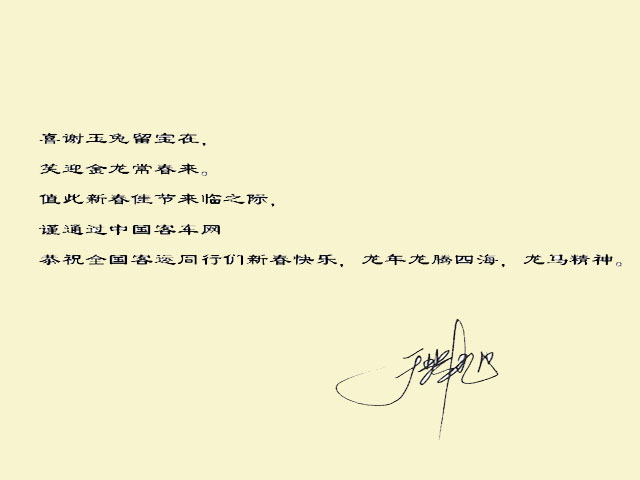 喜谢玉兔留宝在，
笑迎金龙常春来。
值此新春佳节来临之际，
谨通过中国客车网
恭祝全国客运同行们新春快乐，龙年龙腾四海，龙马精神。